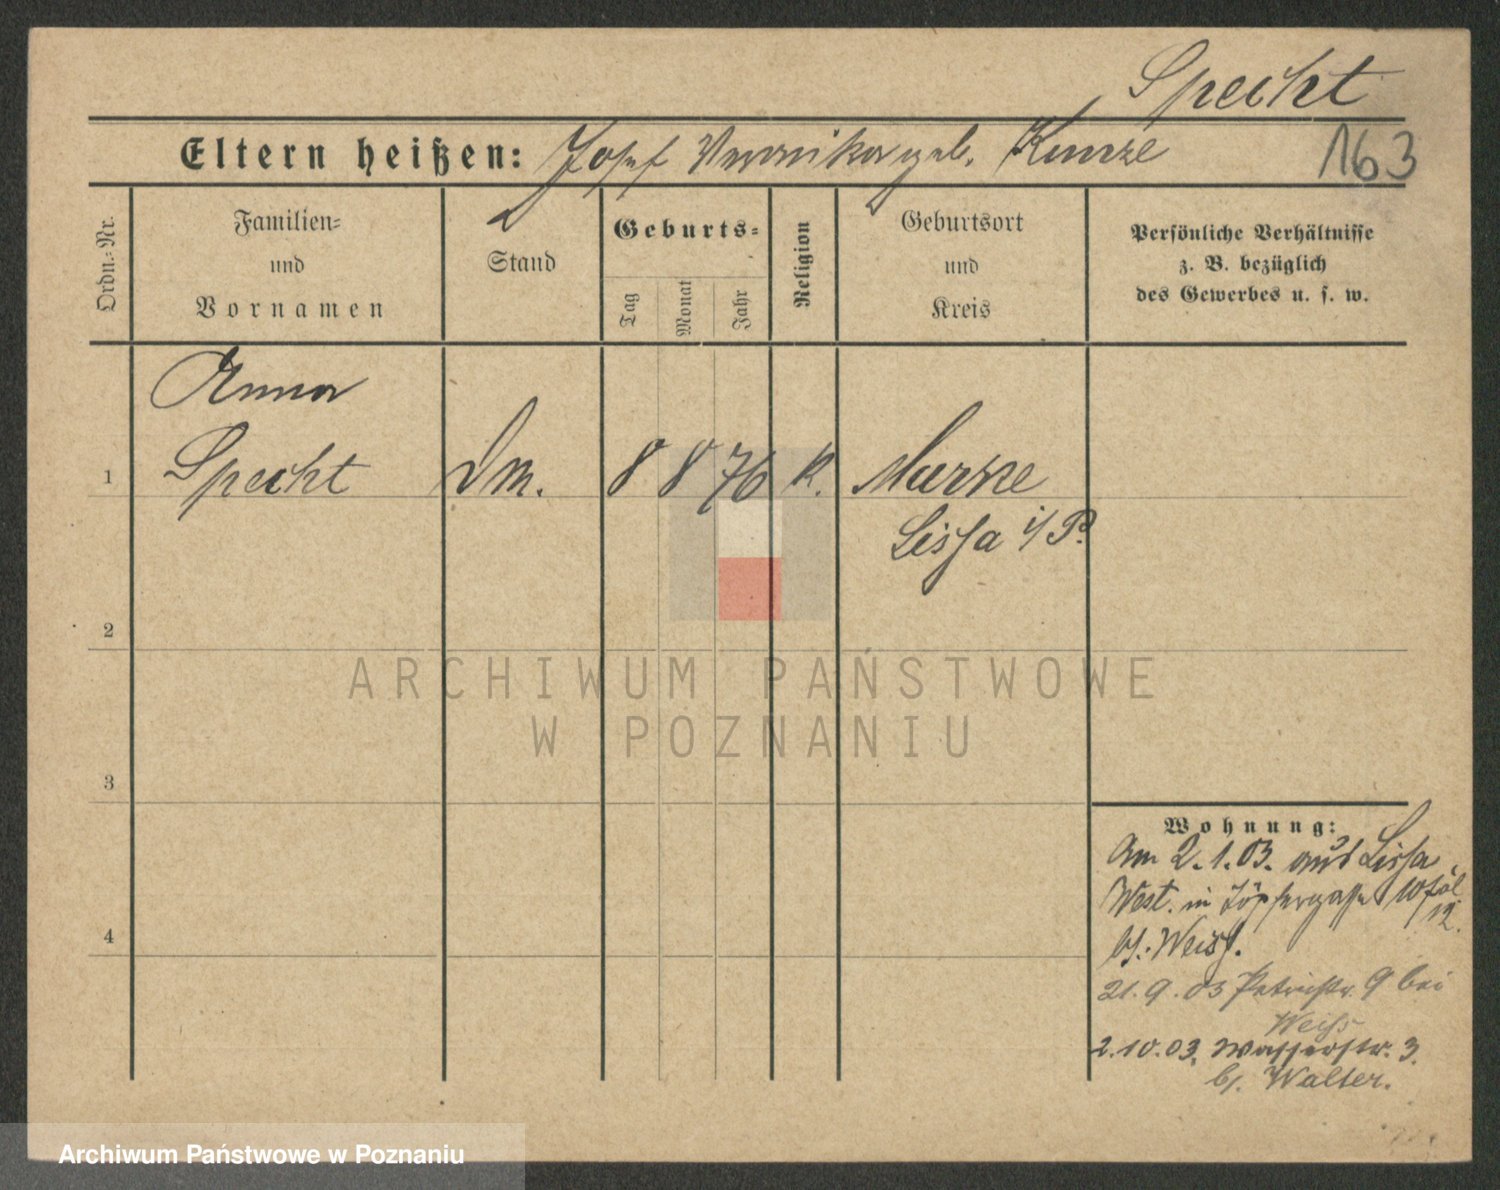 Specht
Eltern heißen: Josef Veronika geb. Kunze
163
Ordn.-Nr.
Familien-
und
Vornamen
Stand
Geburts-
Tag
Monat
Jahr
Religion
Geburtsort
und
Kreis
Persönliche Verhältnisse
z. B. bezüglich
des Gewerbes u. s. w.
Anna
1 Specht Dm. 8 8 76 k.
Lissa i/P.
2
3
4
Wohnung:
Am 2.1.03. aus Lissa
West. in Töpfergasse 10
bj. Weiss.
21.9.03 Petristr. 9 bei
Weiss
2.10.03. Wasserstr. 3.
bj. Walter.
ARCHIWUM PAŃSTWOWE
W POZNANIU
Archiwum Państwowe w Poznaniu